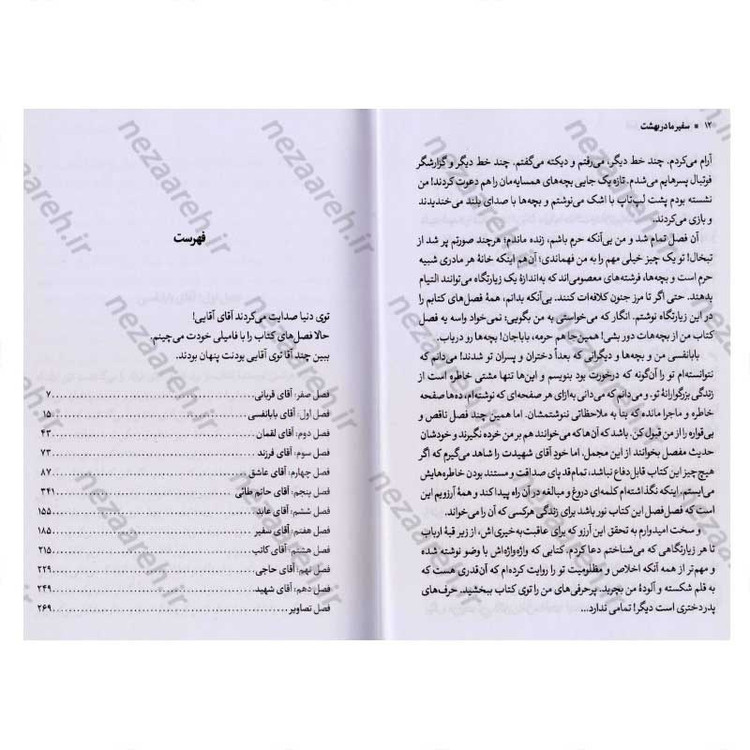 ۱۲ ■ سفیر مادر بهشت
آرام می‌کردم. چند خط دیگر، می‌رفتم و دیکته می‌گفتم. چند خط دیگر و گزارشگر
فوتبال پسرهایم می‌شدم. تازه یک جایی بچه‌های همسایه‌مان را هم دعوت کردند! من
نشسته بودم پشت لپ‌تاپ با اشک می‌نوشتم و بچه‌ها با صدای بلند می‌خندیدند
و بازی می‌کردند.
آن فصل تمام شد و من بی‌آنکه حرم باشم، زنده ماندم؛ هرچند صورتم پر شد از
تبخال! تو یک چیز خیلی مهم را به من فهماندی؛ آن‌هم اینکه خانهٔ هر مادری شبیه
حرم است و بچه‌ها، فرشته‌های معصومی‌اند که به‌اندازهٔ یک زیارتگاه می‌توانند التیام
بدهند. حتی اگر تا مرز جنون کلافه‌ات کنند. بی‌آنکه بدانم، همهٔ فصل‌های کتابم را
در این زیارتگاه نوشتم. انگار که می‌خواستی به من بگویی: نمی‌خواد واسه یه فصل
کتاب من از بچه‌هات دور بشی! همین‌جا هم حرمه، باباجان! بچه‌هات رو دریاب.
بابانفسی من و بچه‌ها و دیگرانی که بعداً دختران و پسران تو شدند! می‌دانم که
نتوانسته‌ام تو را آن‌گونه که درخورت بود بنویسم و این‌ها تنها مشتی خاطره است از
زندگی بزرگوارانهٔ تو. و می‌دانم که می‌دانی به‌ازای هر صفحه‌ای که نوشته‌ام، ده‌ها صفحه
خاطره و ماجرا مانده که بنا به ملاحظاتی ننوشتمشان. اما همین چند فصل ناقص و
بی‌قواره را از من قبول کن. باشد که آن‌ها که می‌خوانند هم بر من خرده نگیرند و خودشان
حدیث مفصل بخوانند از این مجمل. اما خودِ آقای شهیدت را شاهد می‌گیرم که اگر
هیچ‌چیز این کتاب قابل دفاع نباشد، تمام‌قد پای صداقت و مستند بودن خاطره‌هایش
می‌ایستم. اینکه نگذاشته‌ام کلمه‌ای دروغ و مبالغه در آن راه پیدا کند و همهٔ آرزویم این
است که فصل‌فصل این کتاب نور باشد برای زندگی هرکسی که آن را می‌خواند.
و سخت امیدوارم به تحقق این آرزو که برای عاقبت‌به‌خیری‌اش، از زیر قبهٔ ارباب
تا هر زیارتگاهی که می‌شناختم دعا کردم. کتابی که واژه‌واژه‌اش با وضو نوشته شده
و مهم‌تر از همه آنکه اخلاص و مظلومیت تو را روایت کرده‌ام که آن‌قدری هست که
به قلم شکسته و آلودهٔ من بچربد. پرحرفی‌های من را توی کتاب ببخشید. حرف‌های
پدر دختری است دیگر! تمامی ندارد...
فهرست
توی دنیا صدایت می‌کردند آقای آقایی!
حالا فصل‌های کتاب را با فامیلی خودت می‌چینم.
ببین چند آقا توی آقایی بودنت پنهان بودند.
فصل صفر: آقای قربانی ۷
فصل اول: آقای بابانفسی ۱۵
فصل دوم: آقای لقمان ۴۳
فصل سوم: آقای فرزند ۷۳
فصل چهارم: آقای عاشق ۸۷
فصل پنجم: آقای حاتم طائی ۳۴۱
فصل ششم: آقای عابد ۱۵۵
فصل هفتم: آقای سفیر ۱۸۵
فصل هشتم: آقای کاتب ۲۱۵
فصل نهم: آقای حاجی ۲۲۹
فصل دهم: آقای شهید ۲۴۹
فصل تصاویر ۲۶۹
nezaareh.ir